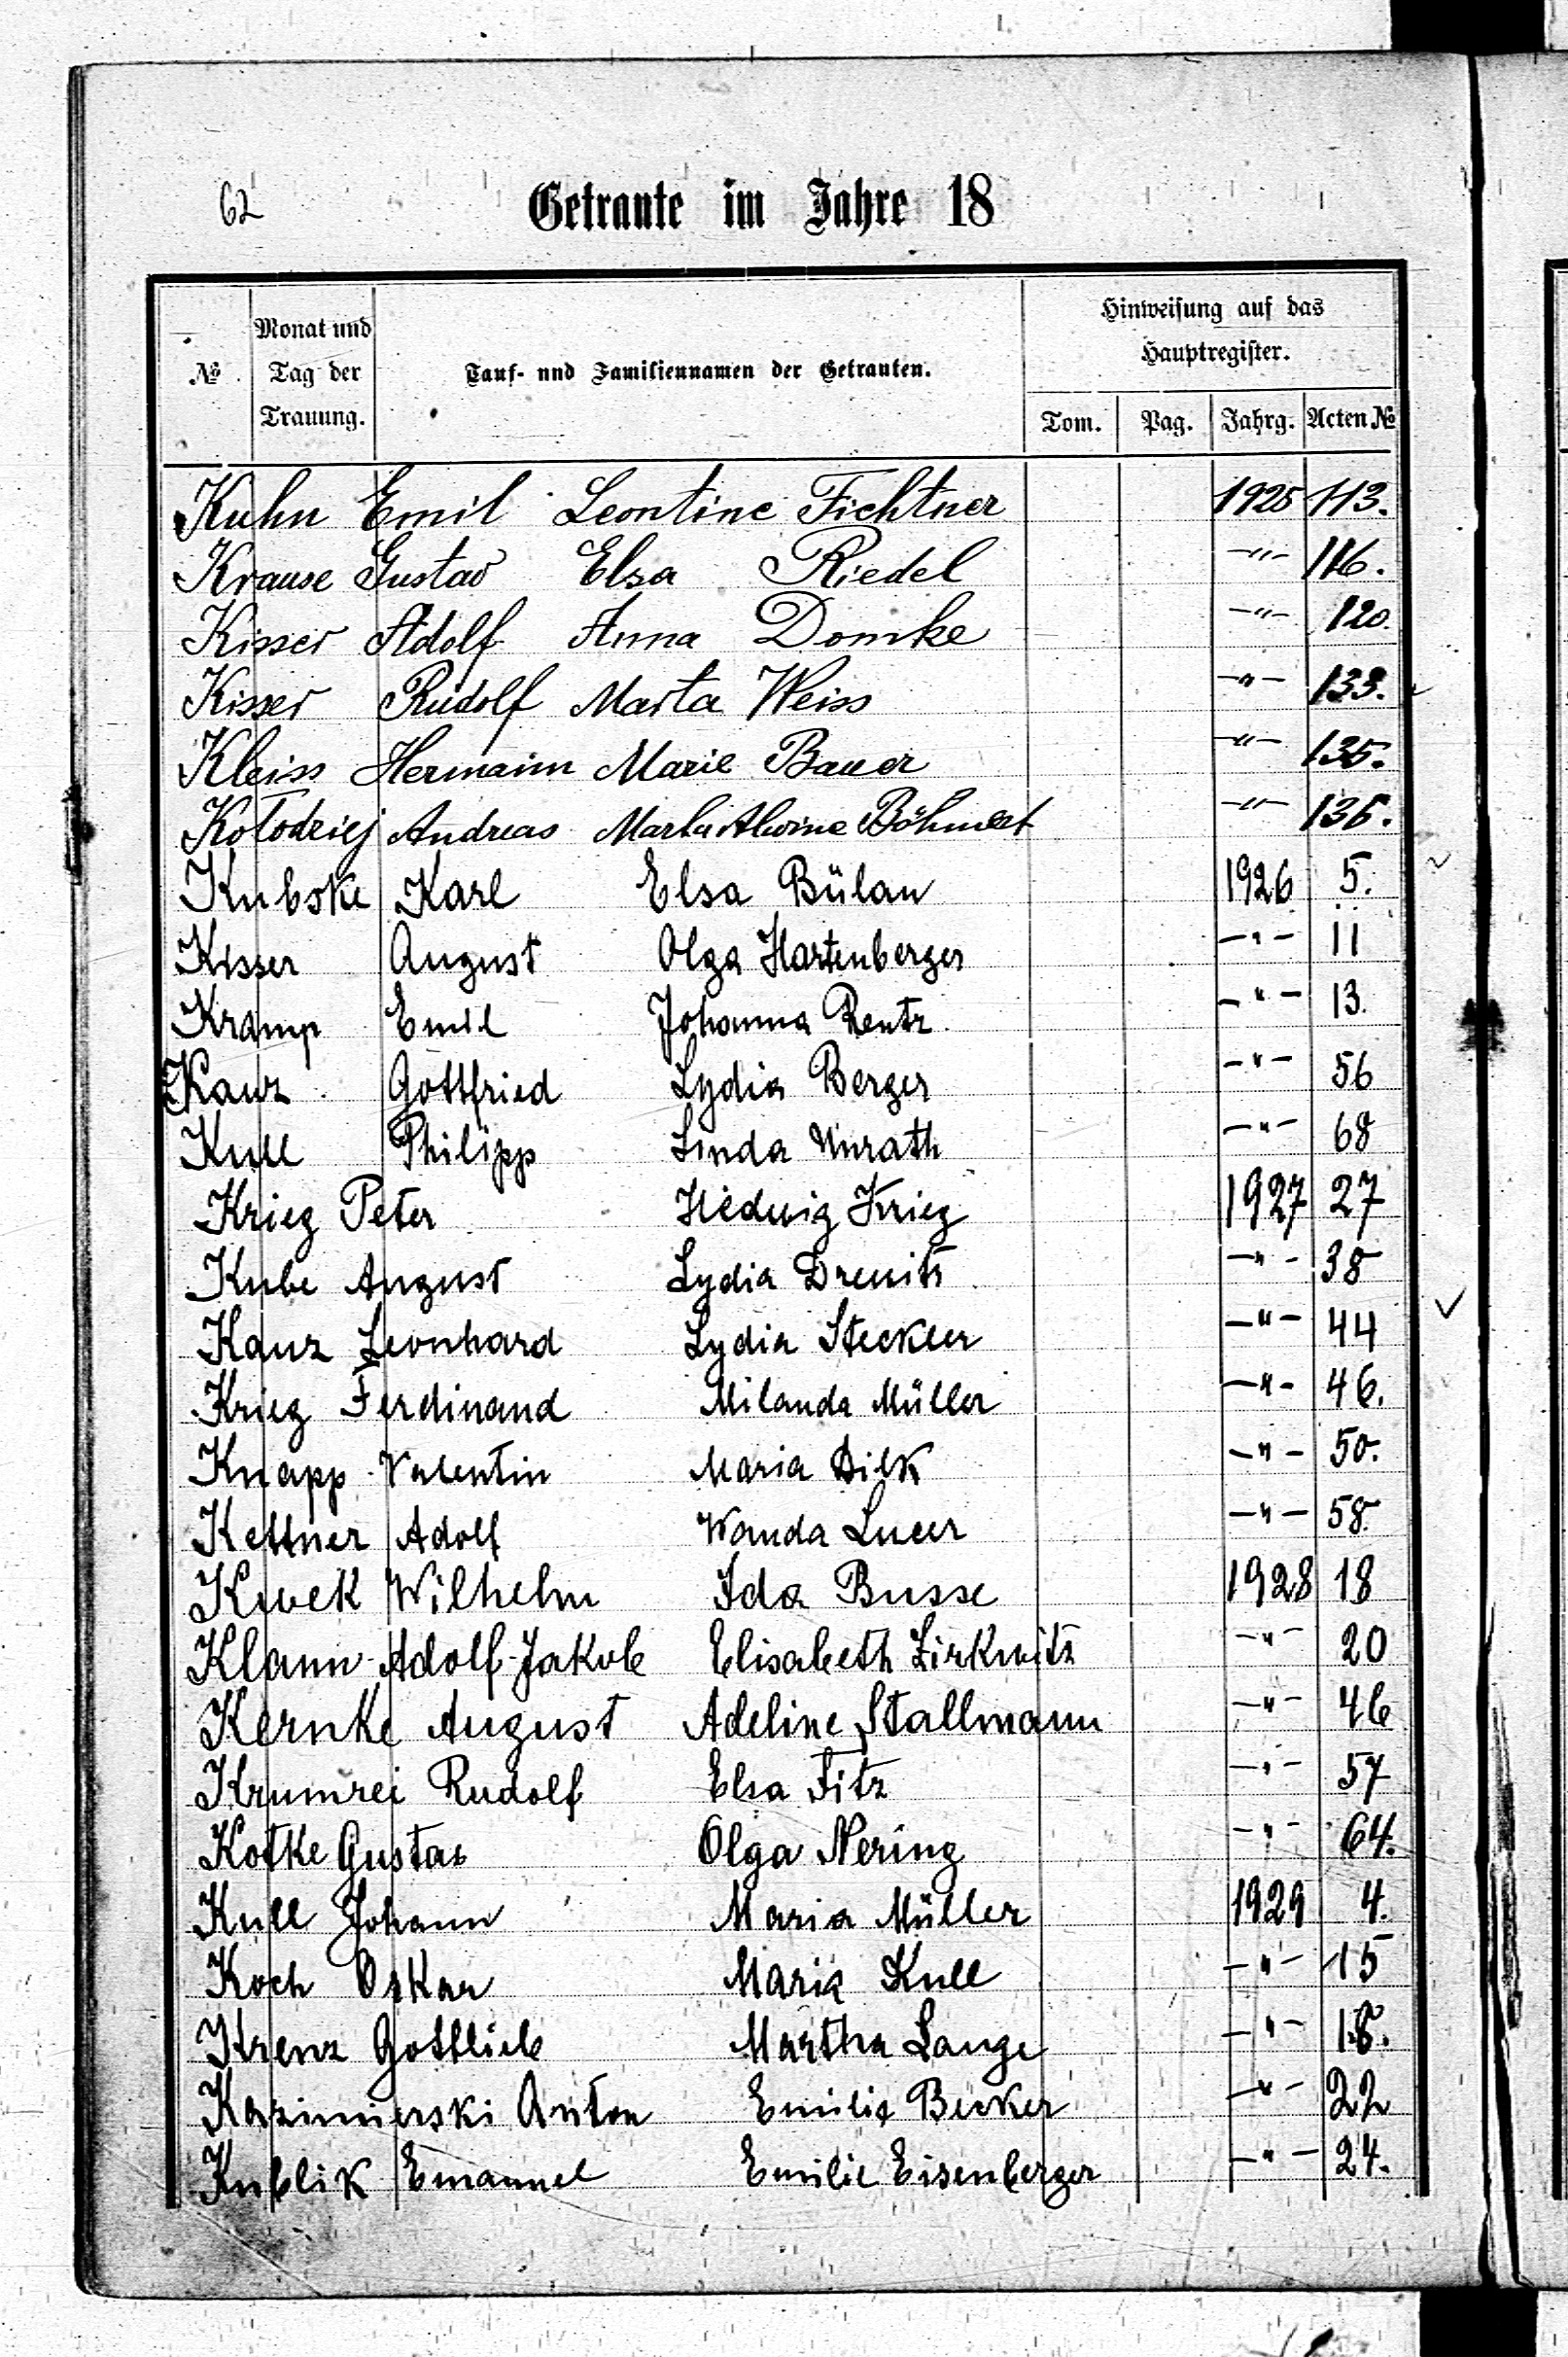 62
Getraute im Jahre 18
№ Monat und Tag der Trauung. Tauf- und Familiennamen der Getrauten. Hinweisung auf das Hauptregister.
Tom. Pag. Jahrg. Acten №
Kuhn Emil Leontine Fichtner 1925 113.
Krause Gustav Elsa Riedel —"— 116.
Kisser Adolf Anna Domke —"— 120.
Kisser Rudolf Marta Weiss —"— 133.
Kleiss Hermann Marie Bauer —"— 135.
Kołodziej Andreas Marta Alwine Böhmert —"— 136.
Kubske Karl Elsa Bülau 1926 5.
Kisser August Olga Hartenberger —"— 11
Kramp Emil Johanna Rentz —"— 13.
Kanz Gottfried Lydia Berger —"— 56
Kull Philipp Linda Unrath —"— 68
Krieg Peter Hedwig Krieg 1927 27
Kube August Lydia —"— 38
Kanz Leonhard Lydia Steckler —"— 44
Krieg Ferdinand Milanda Müller —"— 46.
Knapp Valentin Maria Dilk —"— 50.
Kettner Adolf Wanda —"— 58.
Wilhelm Ida Busse 1928 18
Klann Adolf-Jakob Elisabeth Zirkwitz —"— 20
Kernke August Adeline Stallmann —"— 46
Krumrei Rudolf Elsa Fitz —"— 57
Kotke Gustav Olga Nering —"— 64.
Kull Johann Maria Müller 1929 4.
Koch Oskar Maria Kull —"— 15
Krenz Gottlieb Martha Lange —"—
Kazimierski Anton Emilie Becker —"— 22
Kublik Emanuel Emilie Eisenberger —"— 24.